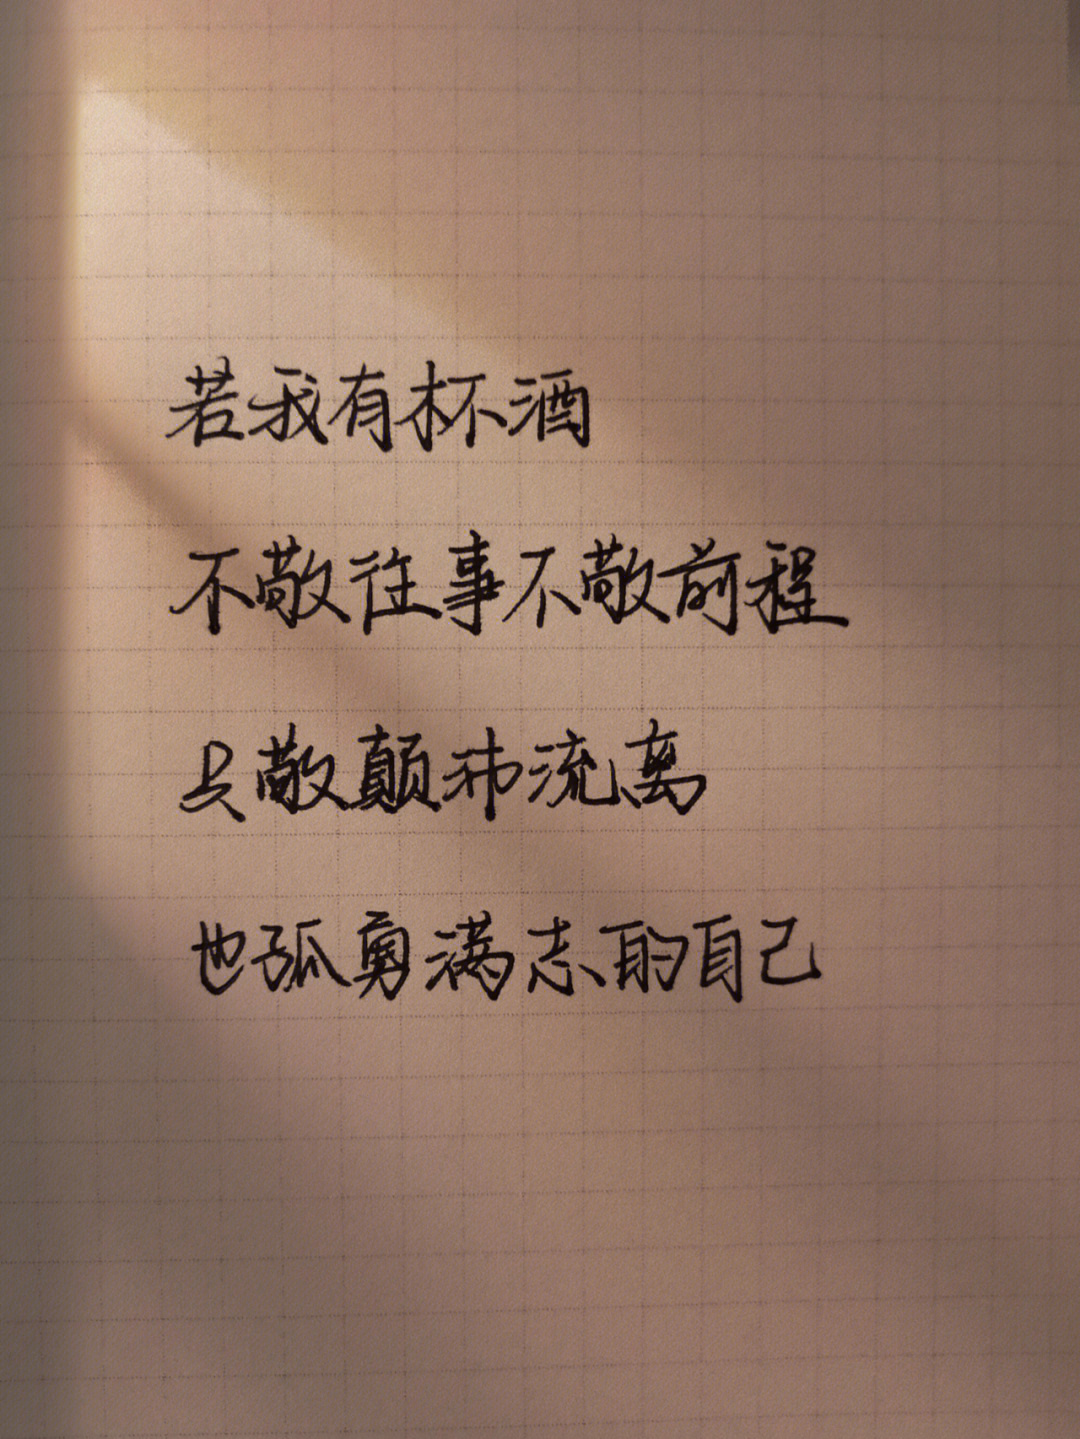 若我有杯酒
不敬往事不敬前程
只敬颠沛流离
也孤勇满志的自己